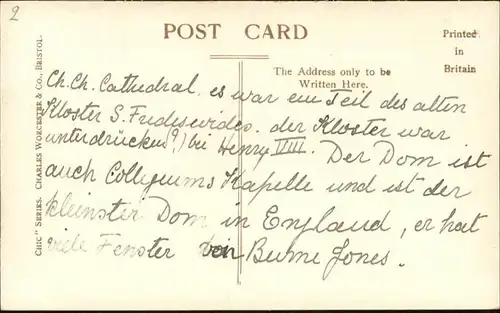 2
POST CARD
Printed
in
Britain
The Address only to be
Written Here.
"CHIC" SERIES. CHARLES WORCESTER & CO., BRISTOL.
Ch. Ch. Cathedral. es war ein Teil des alten
Kloster S. Fredeswides. der Kloster war
unterdrücken(?) bei Henry VIII. Der Dom ist
auch Collegiums Kapelle und ist der
kleinster Dom in England, er hat
viele Fenster von Burne Jones.